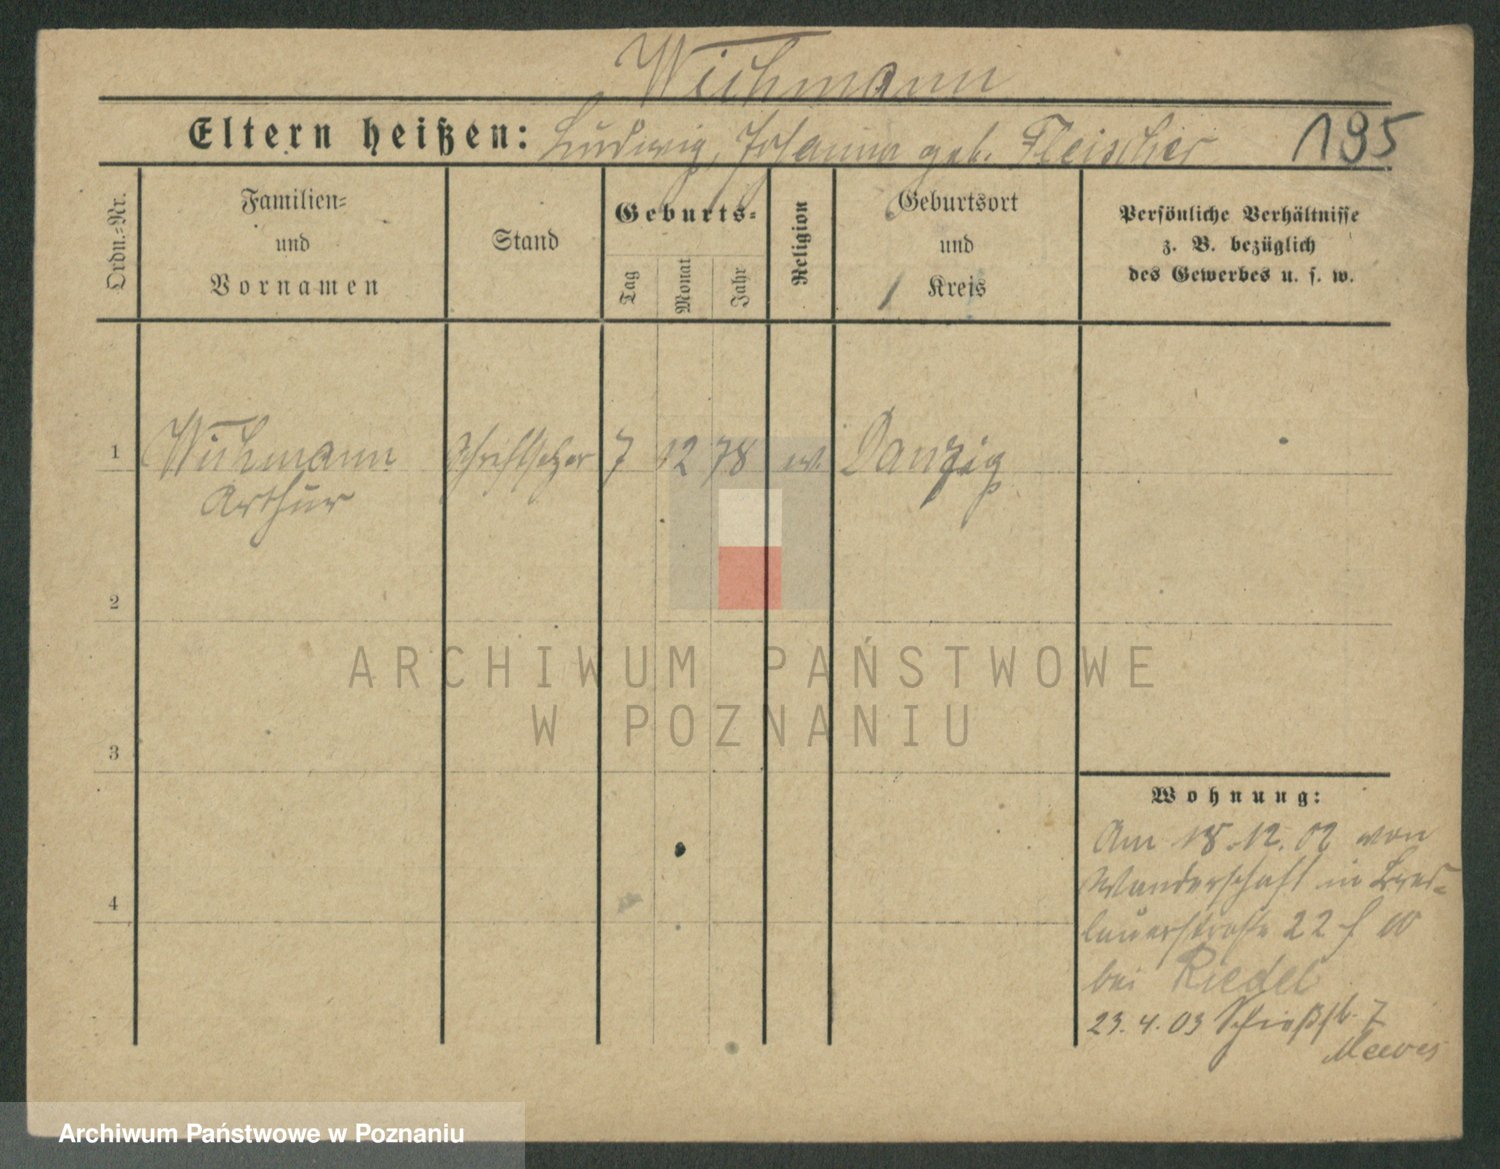 Wichmann
Eltern heißen: Ludwig, Johanna geb. Fleischer 195
Ordn.-Nr.
Familien-
und
Vornamen
Stand
Geburts-
Tag
Monat
Jahr
Religion
Geburtsort
und
Kreis
Persönliche Verhältnisse
z. B. bezüglich
des Gewerbes u. s. w.
1 Wichmann Schriftsetzer 7 12 78 ev. Danzig
Arthur
2
ARCHIWUM PAŃSTWOWE
W POZNANIU
3
4
Wohnung:
Am 18.12.02 von
Wanderschaft in Bres-
lauerstraße 22
bei Riedel
23.4.03 Schießstr. 7
Meewes
Archiwum Państwowe w Poznaniu